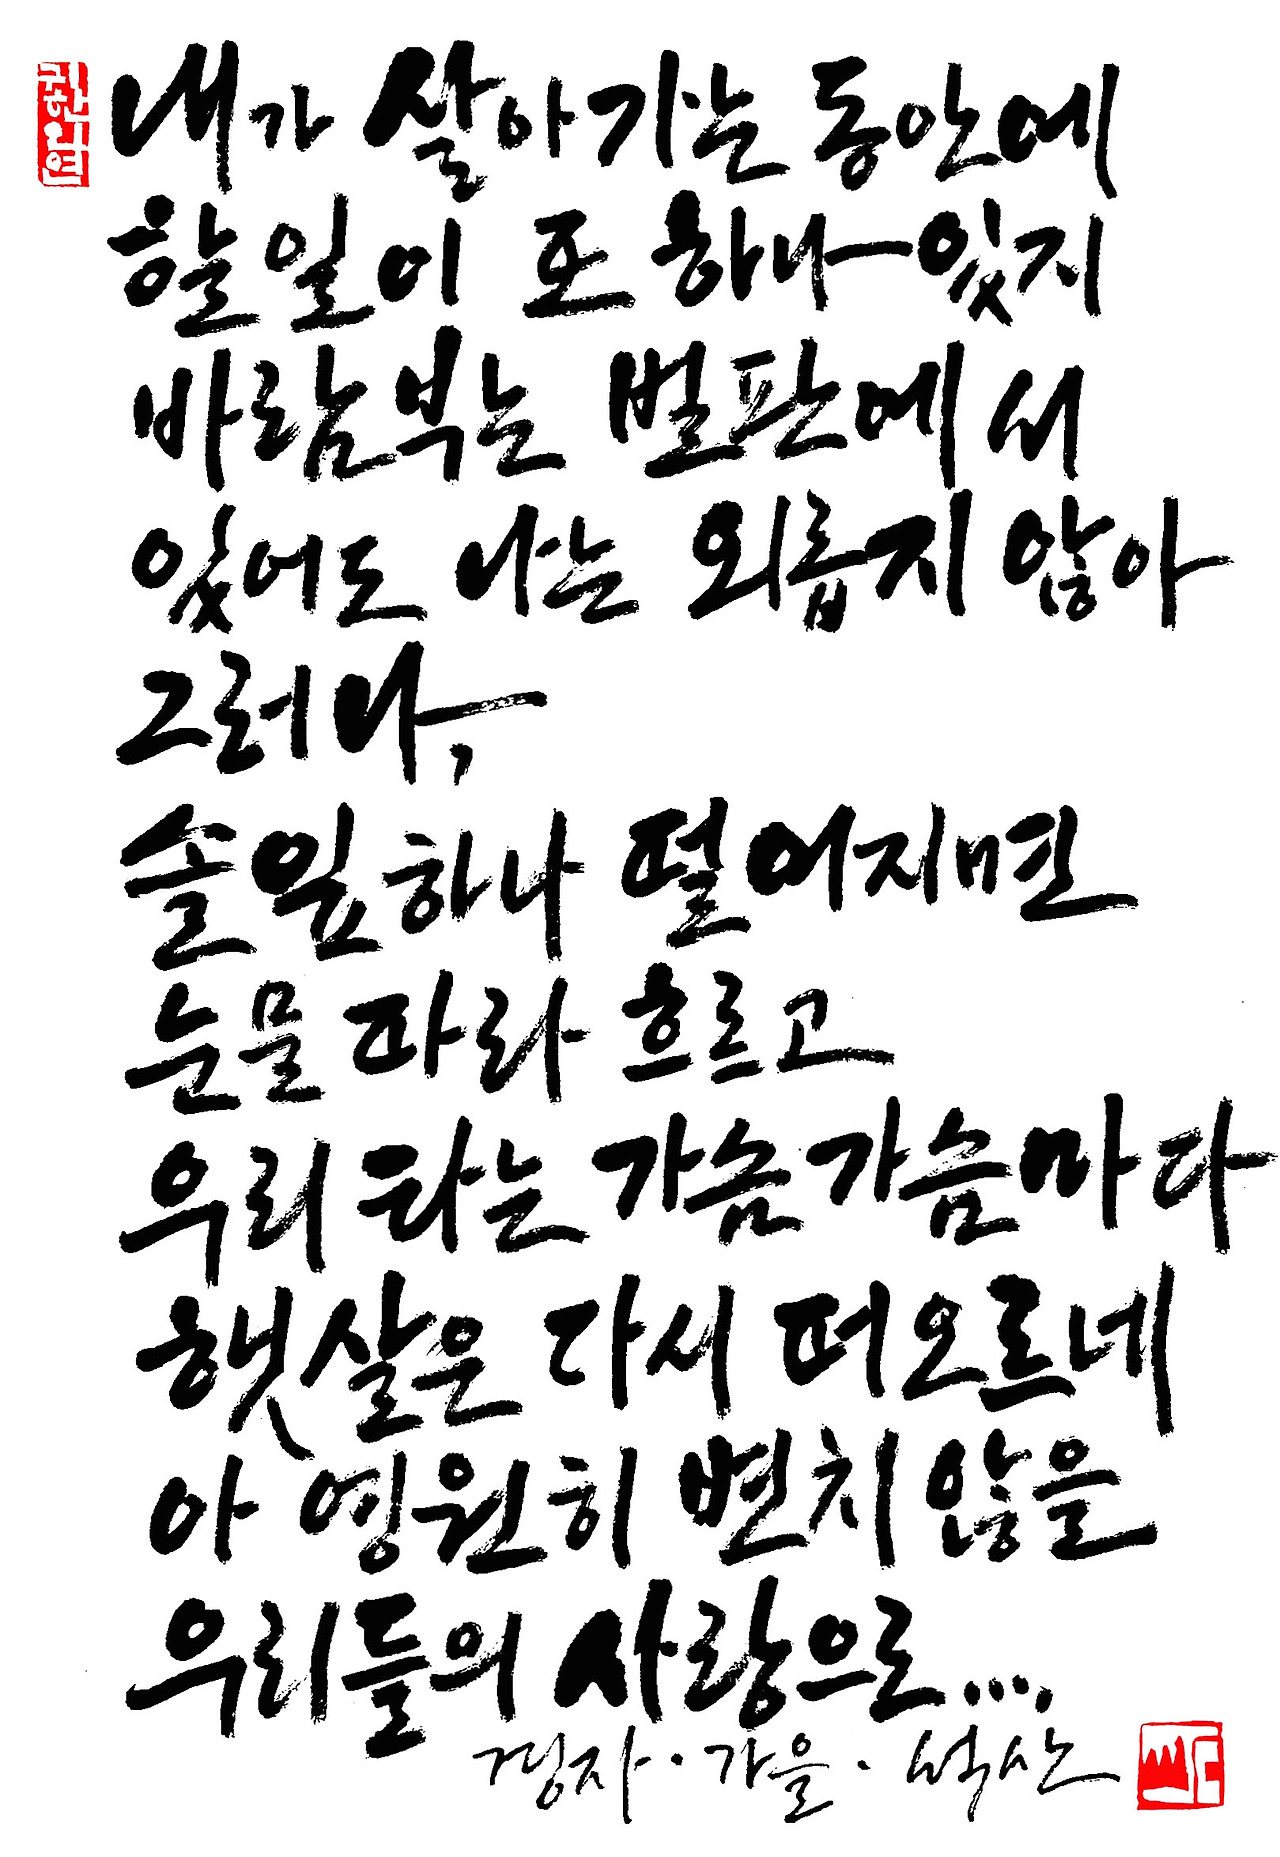 귀한인연
내가 살아가는 동안에
할일이 또 하나있지
바람부는 벌판에 서
있어도 나는 외롭지 않아
그러나,
솔잎하나 떨어지면
눈물따라 흐르고
우리 타는 가슴가슴마다
햇살은 다시 떠오르네
아 영원히 변치 않을
우리들의 사랑으로...
경자·가을·석산